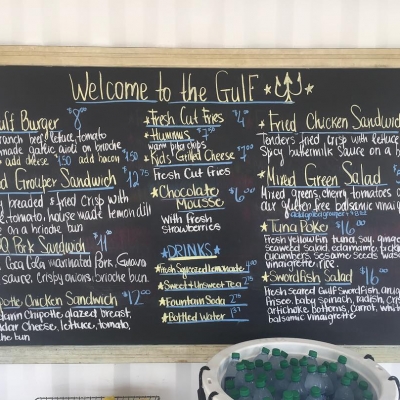 Welcome to the Gulf
Gulf Burger $8.00
ranch beef, lettuce, tomato
made garlic aioli on brioche
add cheese $.50 add bacon $1.50
Grouper Sandwich $12.75
breaded & fried crisp with
tomato, house made lemon dill
on a brioche bun
Pork Sandwich $11.00
Coca Cola marinated Pork, Guava
sauce, crispy onions, brioche bun
Chicken Sandwich $12.00
Chipotle glazed breast,
Cheese, lettuce, tomato,
bun
★Fresh Cut Fries $4
★Hummus $7.00
warm pita chips
★Kid's Grilled Cheese $7.00
Fresh Cut Fries
★Chocolate Mousse $6.00
with Fresh
Strawberries
★DRINKS★
★Fresh Squeezed Lemonade 4.00
★Sweet & Unsweet Tea 2.75
★Fountain Soda 2.75
★Bottled Water
★Fried Chicken Sandwich
Tenders fried crisp with lettuce
Spicy buttermilk Sauce on a
★Mixed Green Salad
Mixed greens, cherry tomatoes
our gluten free balsamic vinaig
★Tuna Poke $16.00
Fresh yellowfin tuna, Soy, ginger
Seaweed Salad, edamame,
cucumbers, Sesame Seeds,
vinaigrette, rice
★Swordfish Salad $16.00
Fresh seared Gulf Swordfish,
frisee, baby spinach, radish,
artichoke bottoms, carrot, whit
balsamic vinaigrette